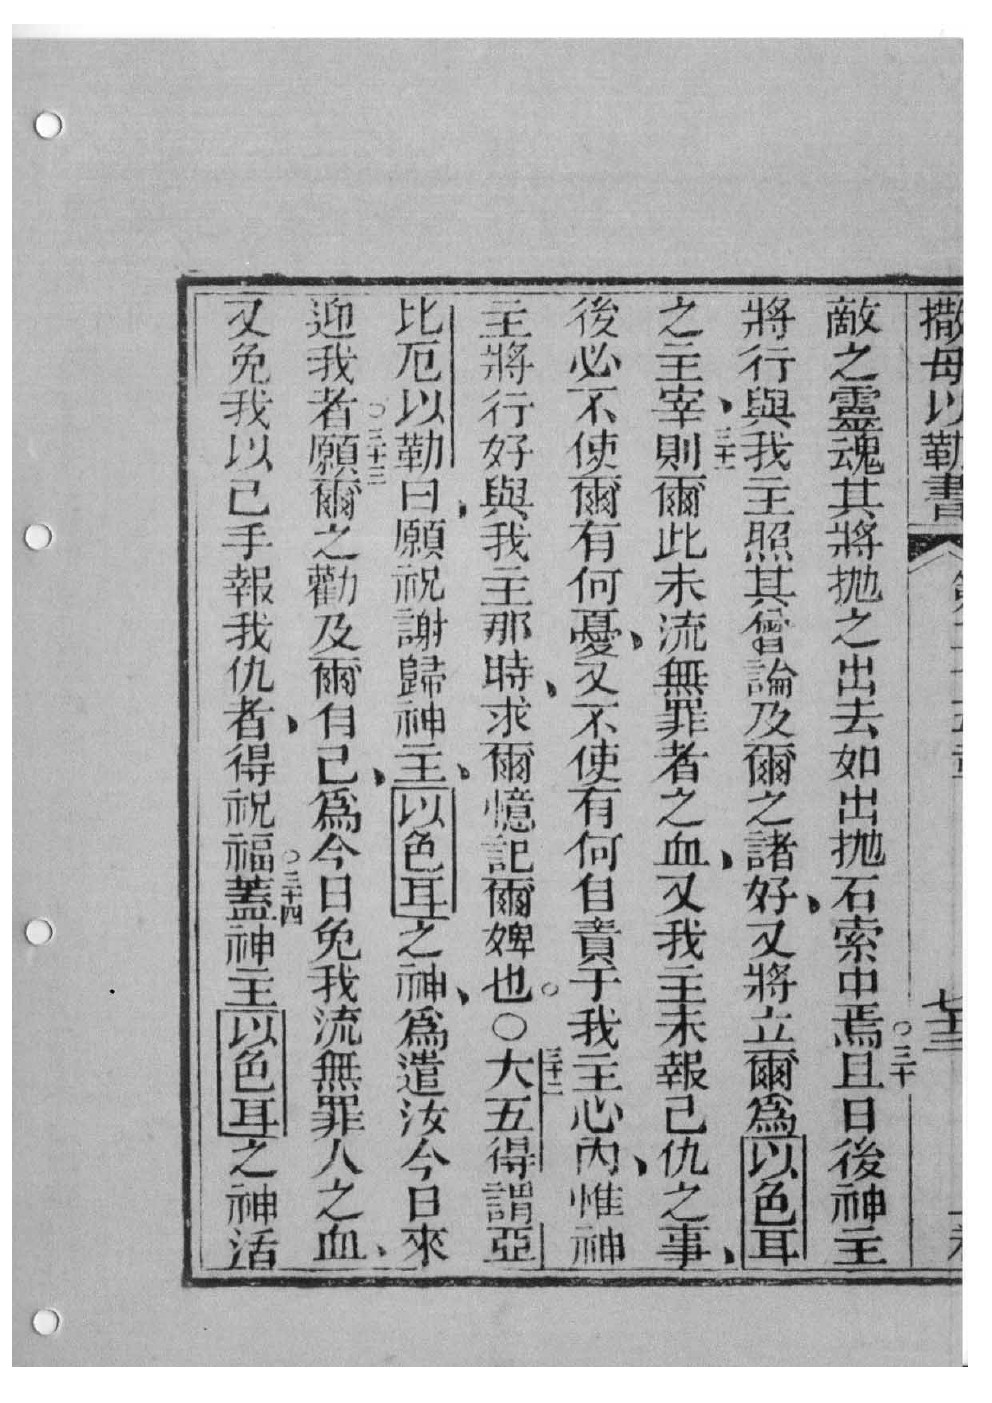 撒母以勒書
七三
敵之靈魂其將拋之出去如出拋石索中焉○三十且日後神主
將行與我主照其曾論及爾之諸好、又將立爾爲以色耳
之主宰、三十一則爾此未流無罪者之血、又我主未報己仇之事、
後必不使爾有何憂、又不使有何自責于我主心內、惟神
主將行好與我主那時、求爾憶記爾婢也。○三十二大五得謂亞
比厄以勒曰、願祝謝歸神主、以色耳之神、爲遣汝今日來
迎我者○三十三願爾之勸及爾有己、爲今日免我流無罪人之血、
又免我以己手報我仇者、得祝福○三十四蓋神主以色耳之神活